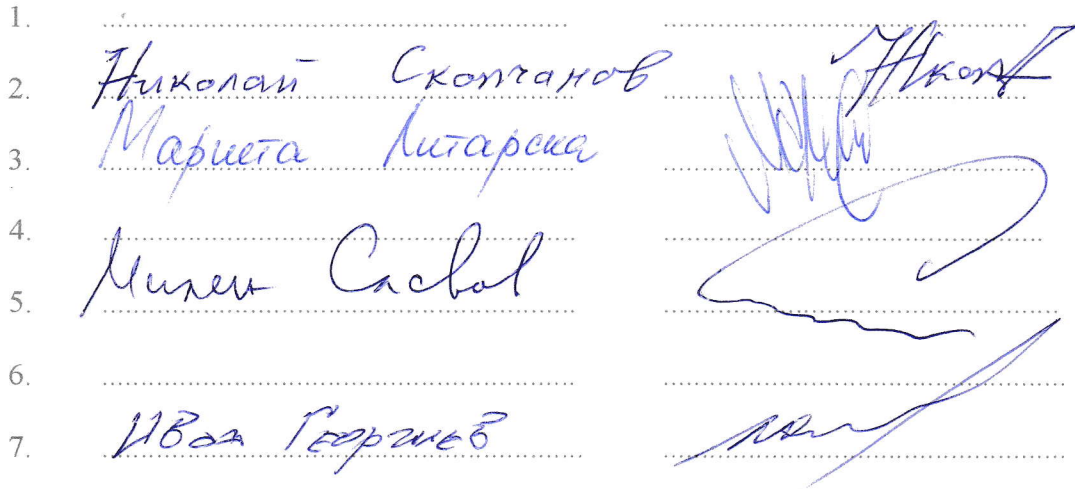 1.
2. Николай Скопчанов
3. Мариета Литарска
4.
5. Милен
6.
7. Иван Георгиев